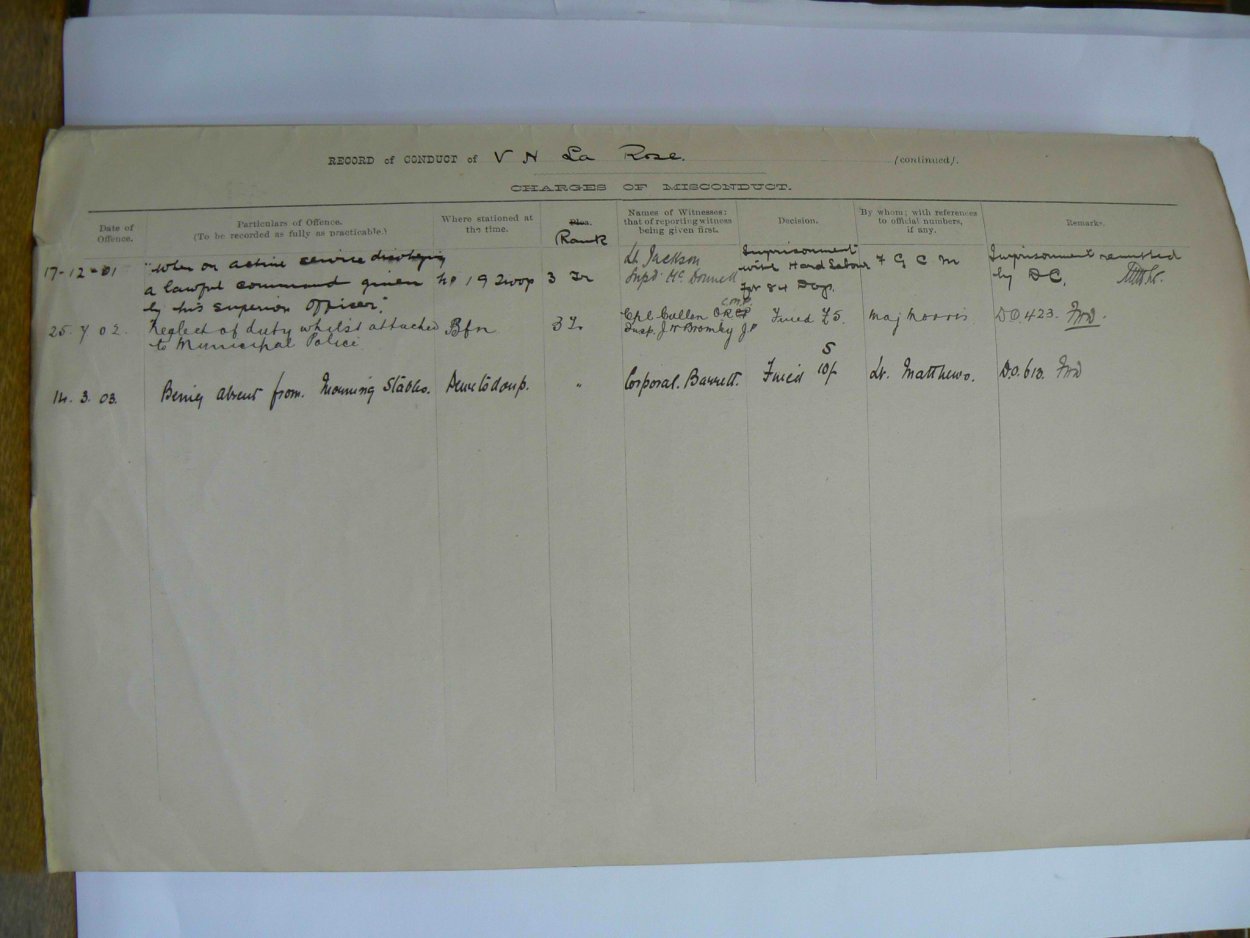 RECORD of CONDUCT of V N La Rose. (continued).
CHARGES OF MISCONDUCT.
Date of Offence. Particulars of Offence. (To be recorded as fully as practicable.) Where stationed at the time. Plea. Rank Names of Witnesses: that of reporting witness being given first. Decision. By whom; with references to official numbers, if any. Remarks.
17-12-01 "When on active service disobeying Lt. Jackson Imprisonment Imprisonment remitted
a lawful command given No 19 Troop 3 Tr Inpd Mc Donnell with Hard Labour F G C M by DC.
by his superior Officer." for 84 Days.
25.7.02. Neglect of duty whilst attached Bfn 3 Tr Cpl Cullen ORCP Fined £5. Maj Morris. DO.423.
to Municipal Police Insp. J W Bromby JP
14.3.03. Being absent from Morning Stables. Dewetsdorp. " Corporal. Barrett. Fined 10/- Lt. Matthews. D.O.613.